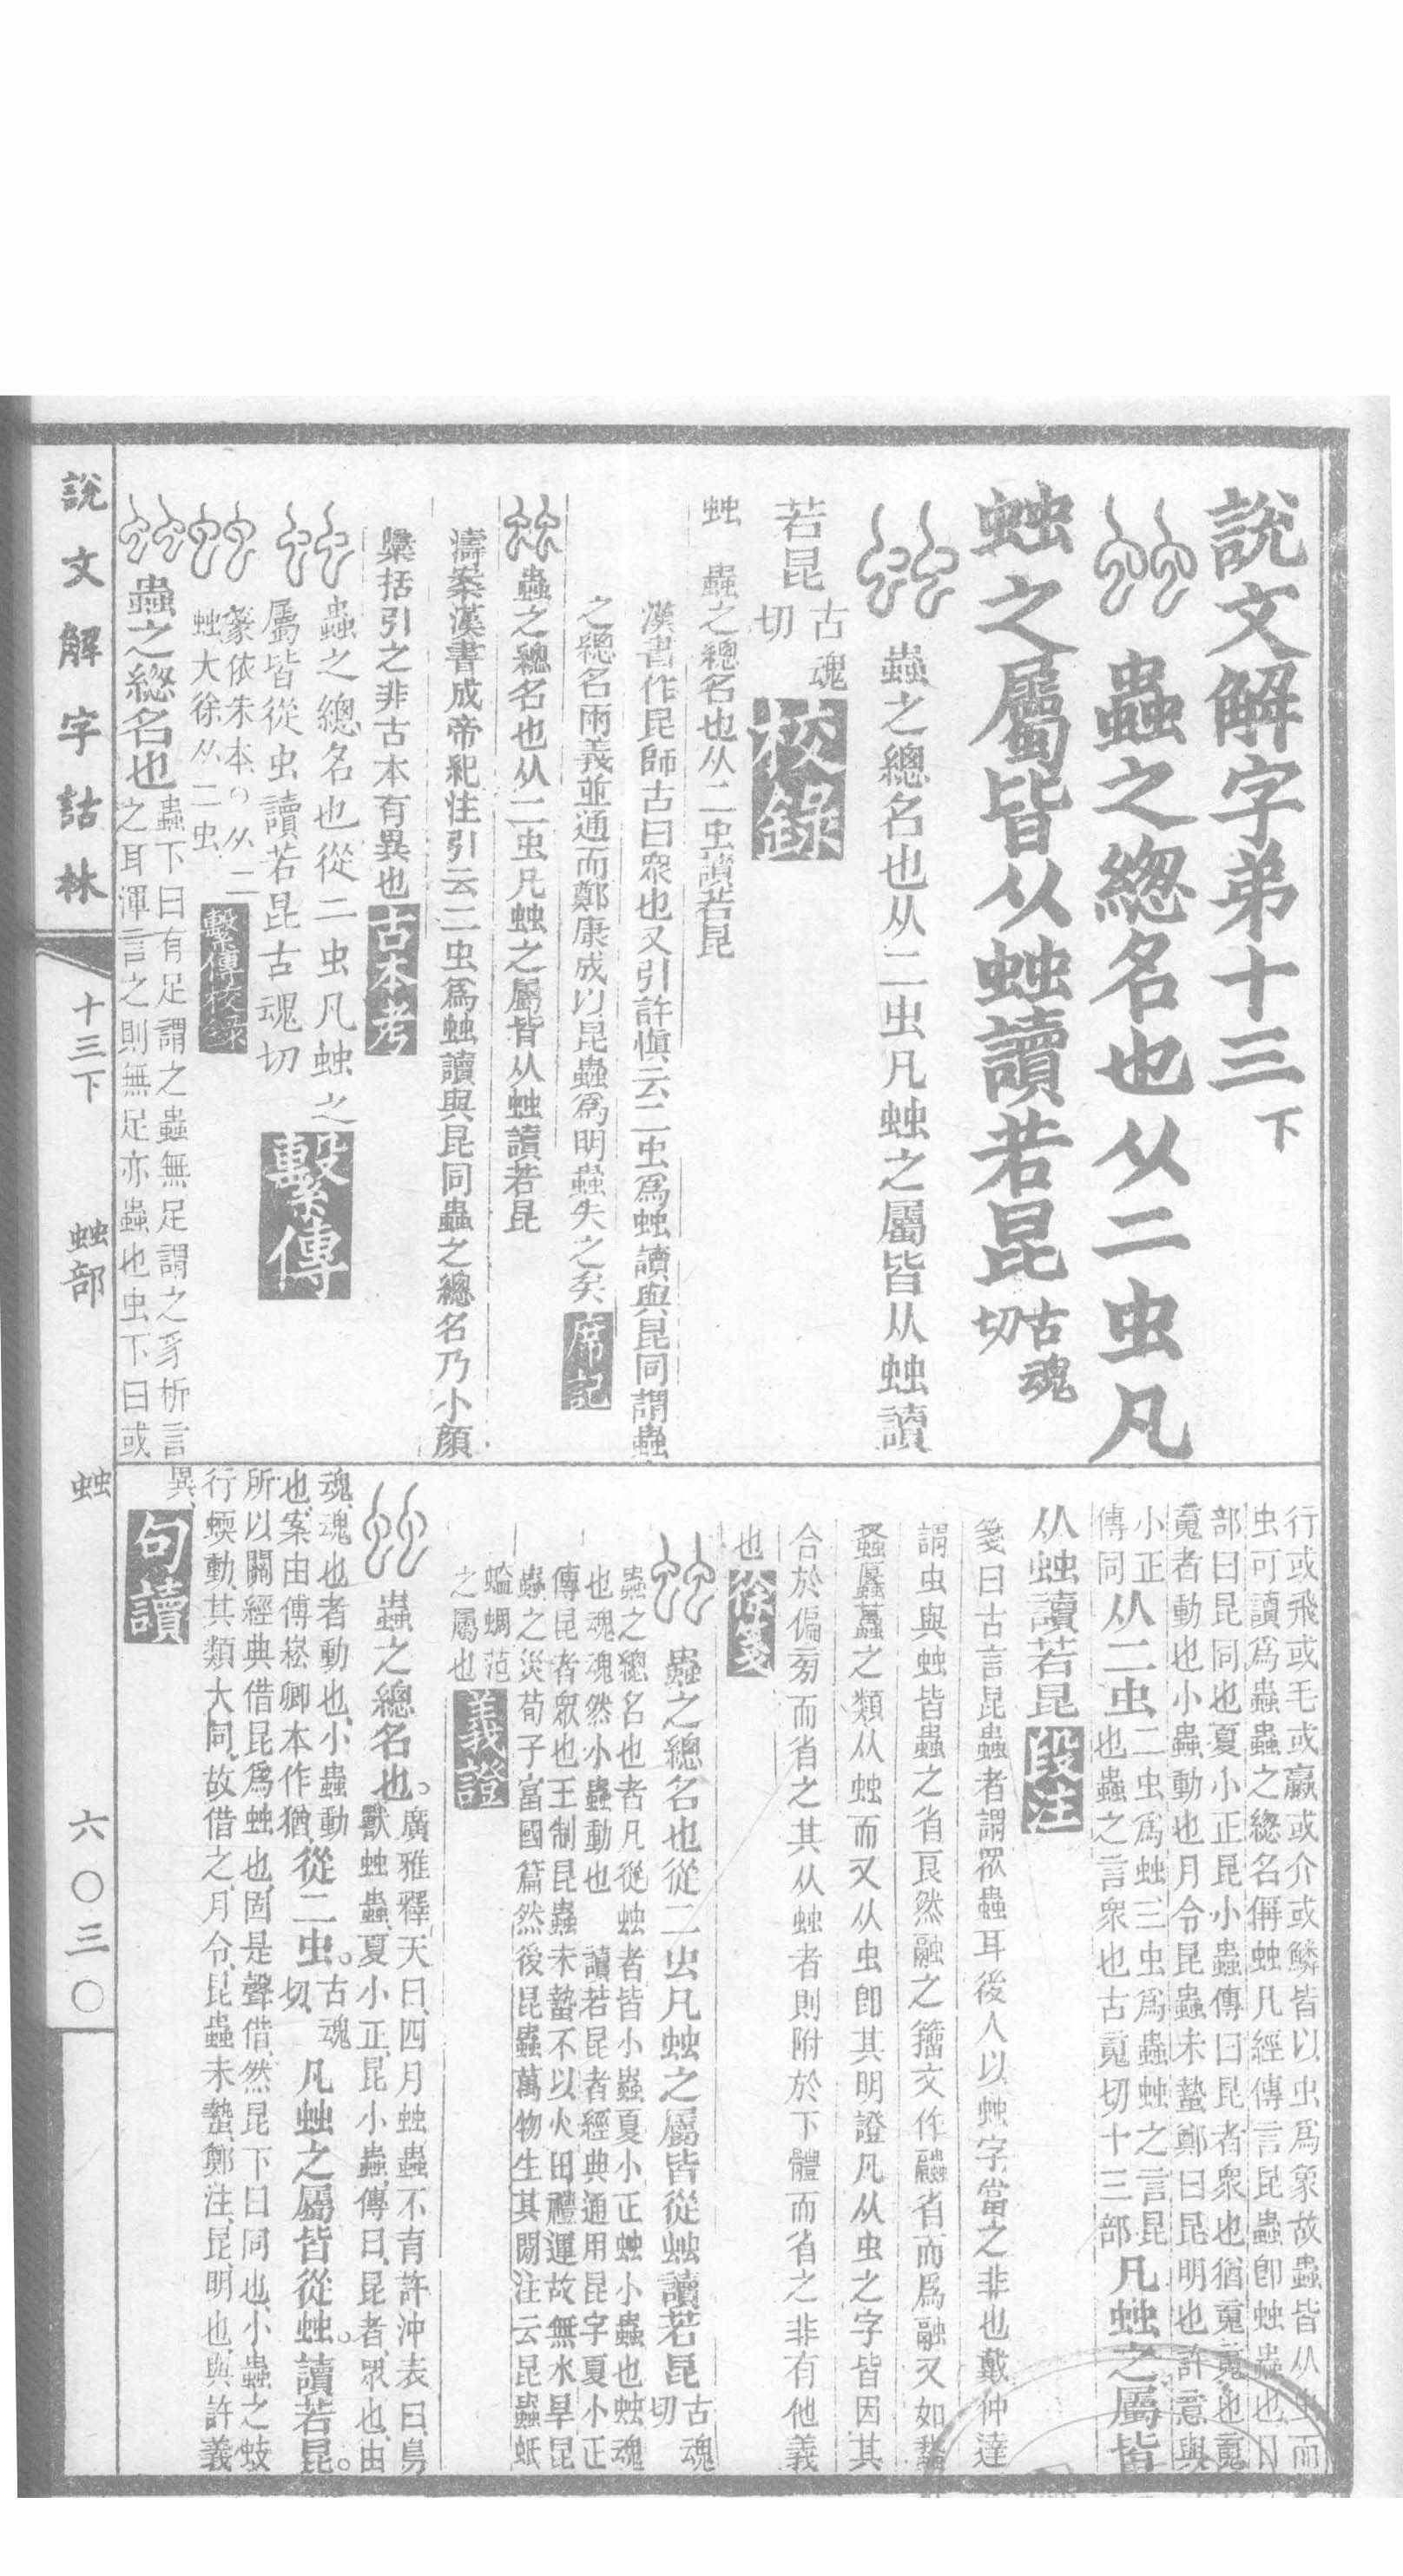 說文解字弟十三下
蟲之總名也从二虫凡
䖵之屬皆从䖵讀若昆古魂切
蟲之總名也从二虫凡䖵之屬皆从䖵讀
若昆古魂切 校錄
䖵 蟲之總名也从二虫讀若昆
漢書作昆師古曰眾也又引許慎云二虫爲䖵讀與昆同謂蟲
之總名兩義並通而鄭康成以昆蟲爲明蟲失之矣 席記
蟲之總名也从二虫凡䖵之屬皆从䖵讀若昆
濤案漢書成帝紀注引云二虫爲䖵讀與昆同蟲之總名乃小顏
櫽括引之非古本有異也 古本考
蟲之總名也從二虫凡䖵之
屬皆從虫讀若昆古魂切 繫傳
篆依朱本○从二
䖵大徐从二虫 繫傳校錄
蟲之總名也
蟲下曰有足謂之蟲無足謂之豸析言
之耳渾言之則無足亦蟲也虫下曰或
行或飛或毛或蠃或介或鱗皆以虫爲象故蟲皆从虫而
虫可讀爲蟲蟲之總名偁䖵凡經傳言昆蟲卽䖵蟲也日
部曰昆同也夏小正昆小蟲傳曰昆者眾也猶䰟䰟也䰟
䰟者動也小蟲動也月令昆蟲未蟄鄭曰昆明也許意與
小正
傳同
从二虫
二虫爲䖵三虫爲蟲䖵之言昆
也蟲之言衆也古䰟切十三部
凡䖵之屬皆
从䖵讀若昆 段注
箋曰古言昆蟲者謂眾蟲耳後人以䖵字當之非也戴仲達
謂虫與䖵皆蟲之省良然融之籀文作䖝省而爲融又如
蚤䘉蠭之類从䖵而又从虫卽其明證凡从虫之字皆因其
合於偏旁而省之其从䖵者則附於下體而省之非有他義
也 徐箋
蟲之總名也從二虫凡䖵之屬皆從䖵讀若昆古魂切
蟲之總名也者凡從䖵者皆小蟲夏小正䖵小蟲也䖵魂
也魂魂然小蟲動也 讀若昆者經典通用昆字夏小正
傳昆者眾也王制昆蟲未蟄不以火田禮運故無水旱昆
蟲之災荀子富國篇然後昆蟲萬物生其閒注云昆蟲蚳
蝓蜩范
之屬也 義證
蟲之總名也。
廣雅釋天曰、四月䖵蟲不育許沖表曰、鳥
獸䖵蟲、夏小正、昆小蟲、傳曰、昆者、眾也、由
魂、魂也者動也、小蟲動
也、案由傅崧卿本作猶、
從二虫。古魂切、凡䖵之屬皆從䖵。讀若昆。
所以關經典借昆爲䖵也、固是聲借、然昆下曰同也、小蟲之蚑
行蝡動、其類大同、故借之、月令、昆蟲未蟄、鄭注、昆、明也、與許義
異、 句讀
說文解字詁林
十三下
䖵部
䖵
六〇三〇